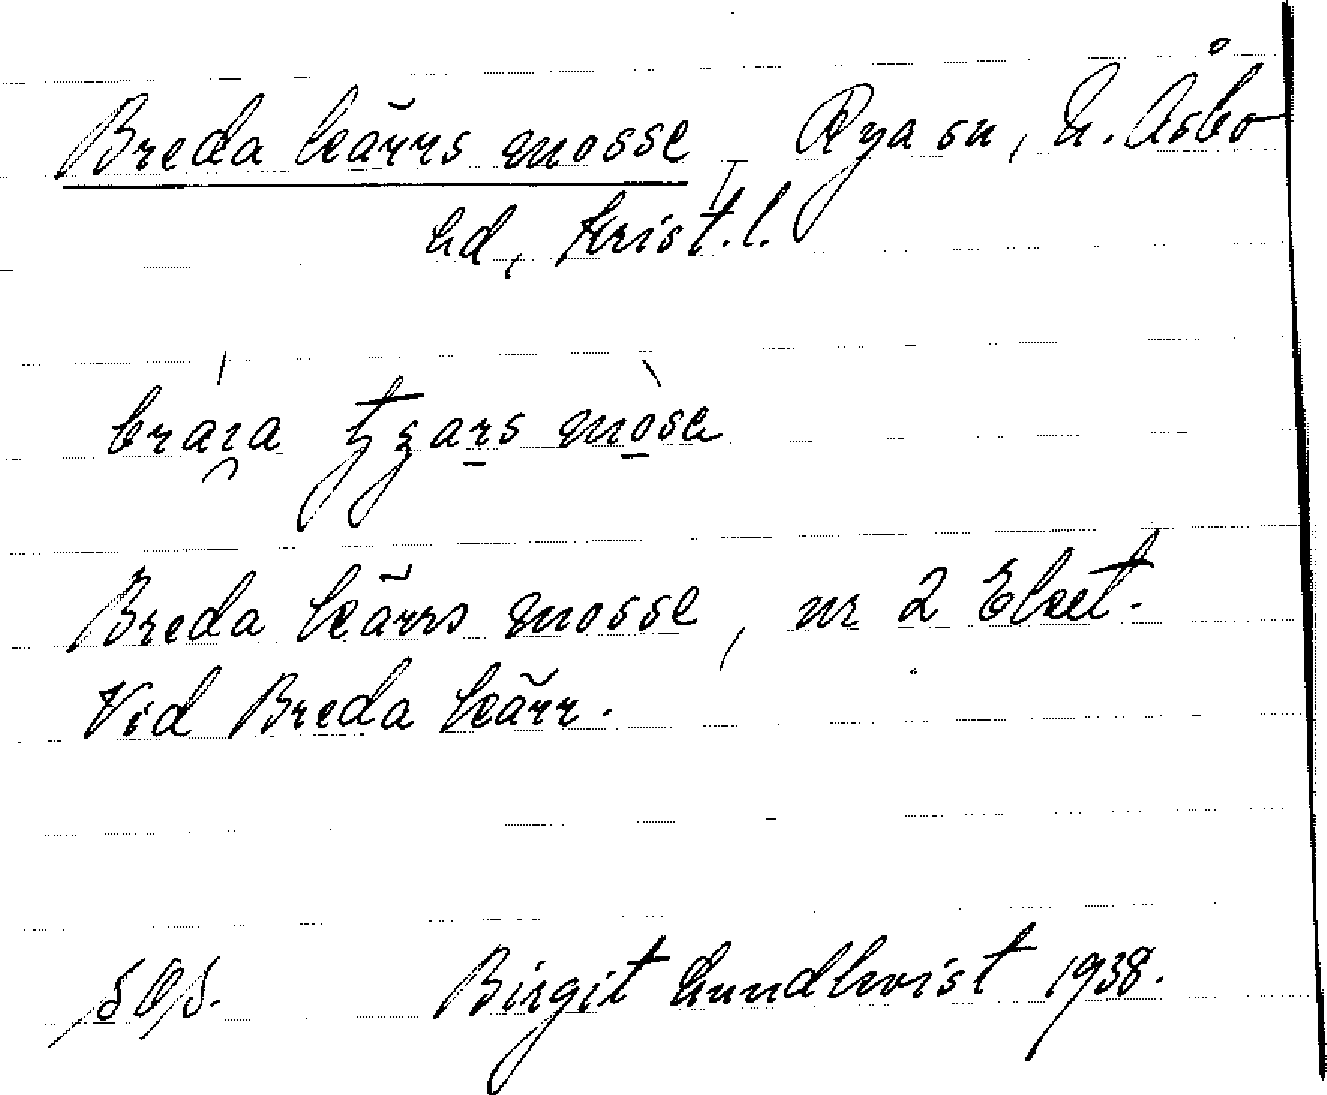 Breda kärrs mosse Rya sn, N. Åsbo
hd, Krist. l.
Breda kärrs mosse, nr 2 Eket.
Vid Breda kärr.
Birgit Lundkvist 1938.